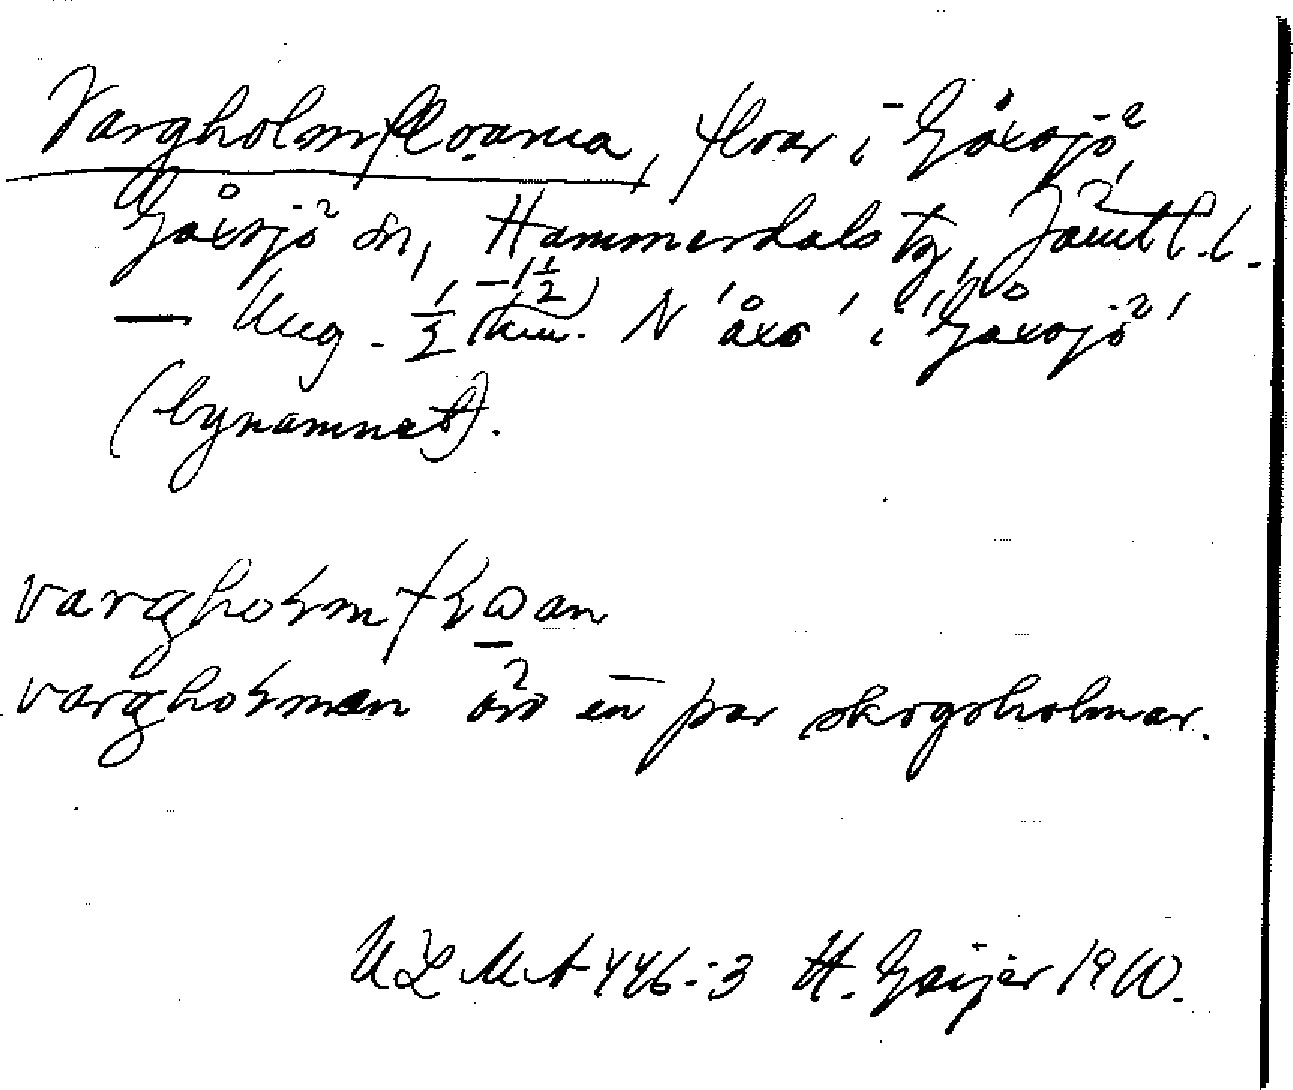 Vargholmfloarna, floar i Gåxsjö,
Gåxsjö sn, Hammerdals tg, Jämtl. l.
— Ung. ½ -1½ km. N 'åxs' i 'Gåxsjö'
(bynamnet).
vargholmf
vargholman en par skogsholmar.
ULMA 446:3 H. Geijer 1910.